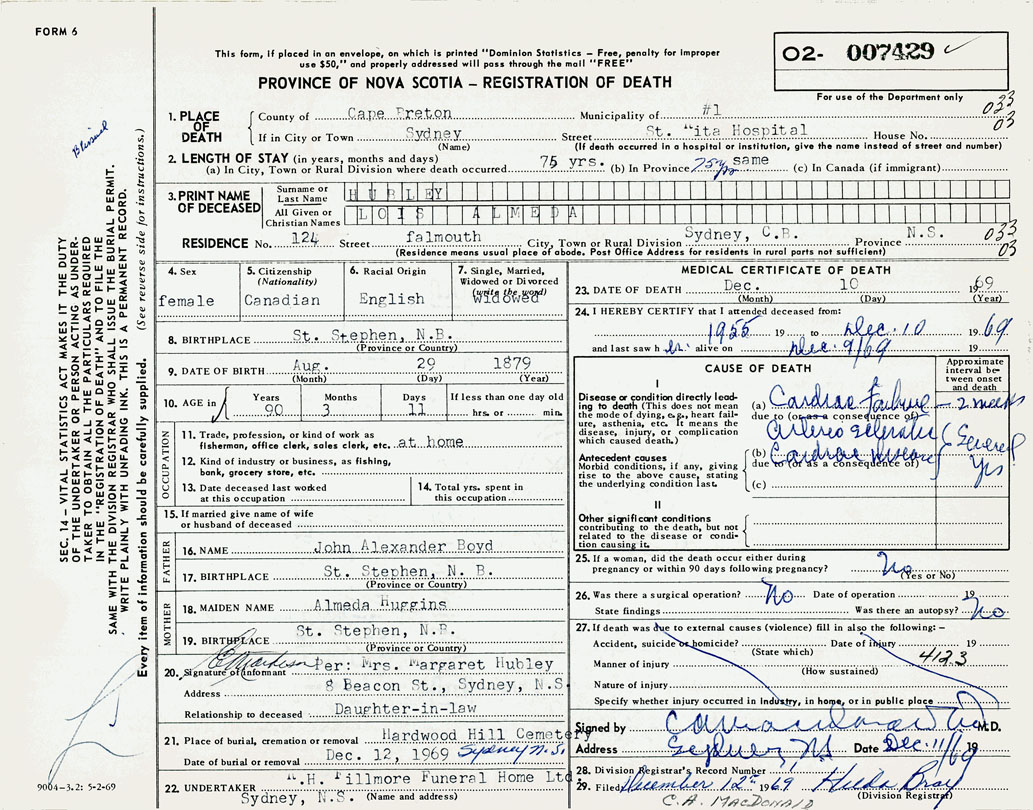 FORM 6
This form, if placed in an envelope, on which is printed "Dominion Statistics – Free, penalty for improper
use $50," and properly addressed will pass through the mail "FREE"
PROVINCE OF NOVA SCOTIA – REGISTRATION OF DEATH
O2- 007429
For use of the Department only
1. PLACE OF DEATH
County of Cape Breton Municipality of #1 033
If in City or Town Sydney Street St. Rita Hospital House No. 03
(Name) (If death occurred in a hospital or institution, give the name instead of street and number)
2. LENGTH OF STAY (in years, months and days)
(a) In City, Town or Rural Division where death occurred 75 yrs. (b) In Province 75 yrs same (c) In Canada (if immigrant)
3. PRINT NAME OF DECEASED
Surname or Last Name HUBLEY
All Given or Christian Names LOIS ALMEDA
RESIDENCE No. 124 Street falmouth City, Town or Rural Division Sydney, C.B. Province N.S. 033
03
(Residence means usual place of abode. Post Office Address for residents in rural parts not sufficient)
4. Sex
female
5. Citizenship
(Nationality)
Canadian
6. Racial Origin
English
7. Single, Married,
Widowed or Divorced
(write the word)
Widowed
8. BIRTHPLACE St. Stephen, N.B.
(Province or Country)
9. DATE OF BIRTH Aug. 29 1879
(Month) (Day) (Year)
10. AGE in Years Months Days If less than one day old
90 3 11 hrs. or min.
OCCUPATION
11. Trade, profession, or kind of work as
fisherman, office clerk, sales clerk, etc. at home
12. Kind of industry or business, as fishing,
bank, grocery store, etc.
13. Date deceased last worked
at this occupation
14. Total yrs. spent in
this occupation
15. If married give name of wife
or husband of deceased
FATHER
16. NAME John Alexander Boyd
17. BIRTHPLACE St. Stephen, N. B.
(Province or Country)
MOTHER
18. MAIDEN NAME Almeda Huggins
19. BIRTHPLACE St. Stephen, N.B.
(Province or Country)
20. Signature of informant Per: Mrs. Margaret Hubley
Address 8 Beacon St., Sydney, N.S.
Relationship to deceased Daughter-in-law
21. Place of burial, cremation or removal Hardwood Hill Cemetery
Date of burial or removal Dec. 12, 1969 Sydney N.S.
22. UNDERTAKER .H. Fillmore Funeral Home Ltd.
Sydney, N.S. (Name and address)
MEDICAL CERTIFICATE OF DEATH
23. DATE OF DEATH Dec. 10 1969
(Month) (Day) (Year)
24. I HEREBY CERTIFY that I attended deceased from:
1955 19 to Dec. 10 1969
and last saw h er alive on Dec. 9/69 19
CAUSE OF DEATH
Approximate interval between onset and death
I
Disease or condition directly leading to death (This does not mean the mode of dying, e.g., heart failure, asthenia, etc. It means the disease, injury, or complication which caused death.)
(a) Cardiac Failure – 2 weeks
due to (or as a consequence of)
Arterio sclerotic
Antecedent causes
Morbid conditions, if any, giving rise to the above cause, stating the underlying condition last.
(b) Cardiac disease
due to (or as a consequence of)
Several
yrs
(c)
II
Other significant conditions
contributing to the death, but not
related to the disease or condition causing it.
25. If a woman, did the death occur either during
pregnancy or within 90 days following pregnancy? No
(Yes or No)
26. Was there a surgical operation? No Date of operation 19
State findings Was there an autopsy? No
27. If death was due to external causes (violence) fill in also the following: –
Accident, suicide or homicide? Date of injury 19
(State which) 4123
Manner of injury
(How sustained)
Nature of injury
Specify whether injury occurred in industry, in home, or in public place
Signed by M.D.
Address Sydney, NS Date Dec. 11/69 19
28. Division Registrar's Record Number
29. Filed December 12th 1969 Hilda Bray
(Division Registrar)
C.A. MACDONALD
SEC. 14 – VITAL STATISTICS ACT MAKES IT THE DUTY
OF THE UNDERTAKER OR PERSON ACTING AS UNDER-
TAKER TO OBTAIN ALL THE PARTICULARS REQUIRED
IN THE "REGISTRATION OF DEATH" AND TO FILE THE
SAME WITH THE DIVISION REGISTRAR WHO SHALL ISSUE THE BURIAL PERMIT.
WRITE PLAINLY WITH UNFADING INK. THIS IS A PERMANENT RECORD.
Every item of information should be carefully supplied. (See reverse side for instructions.)
9004–3.2: 5-2-69